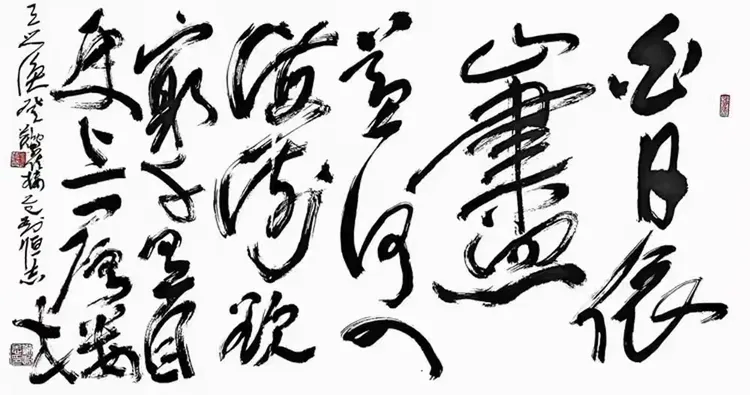 白日依
山盡
黄河入
海流欲
窮千里目
更上一層樓
王之渙登鸛雀樓 劉恒志